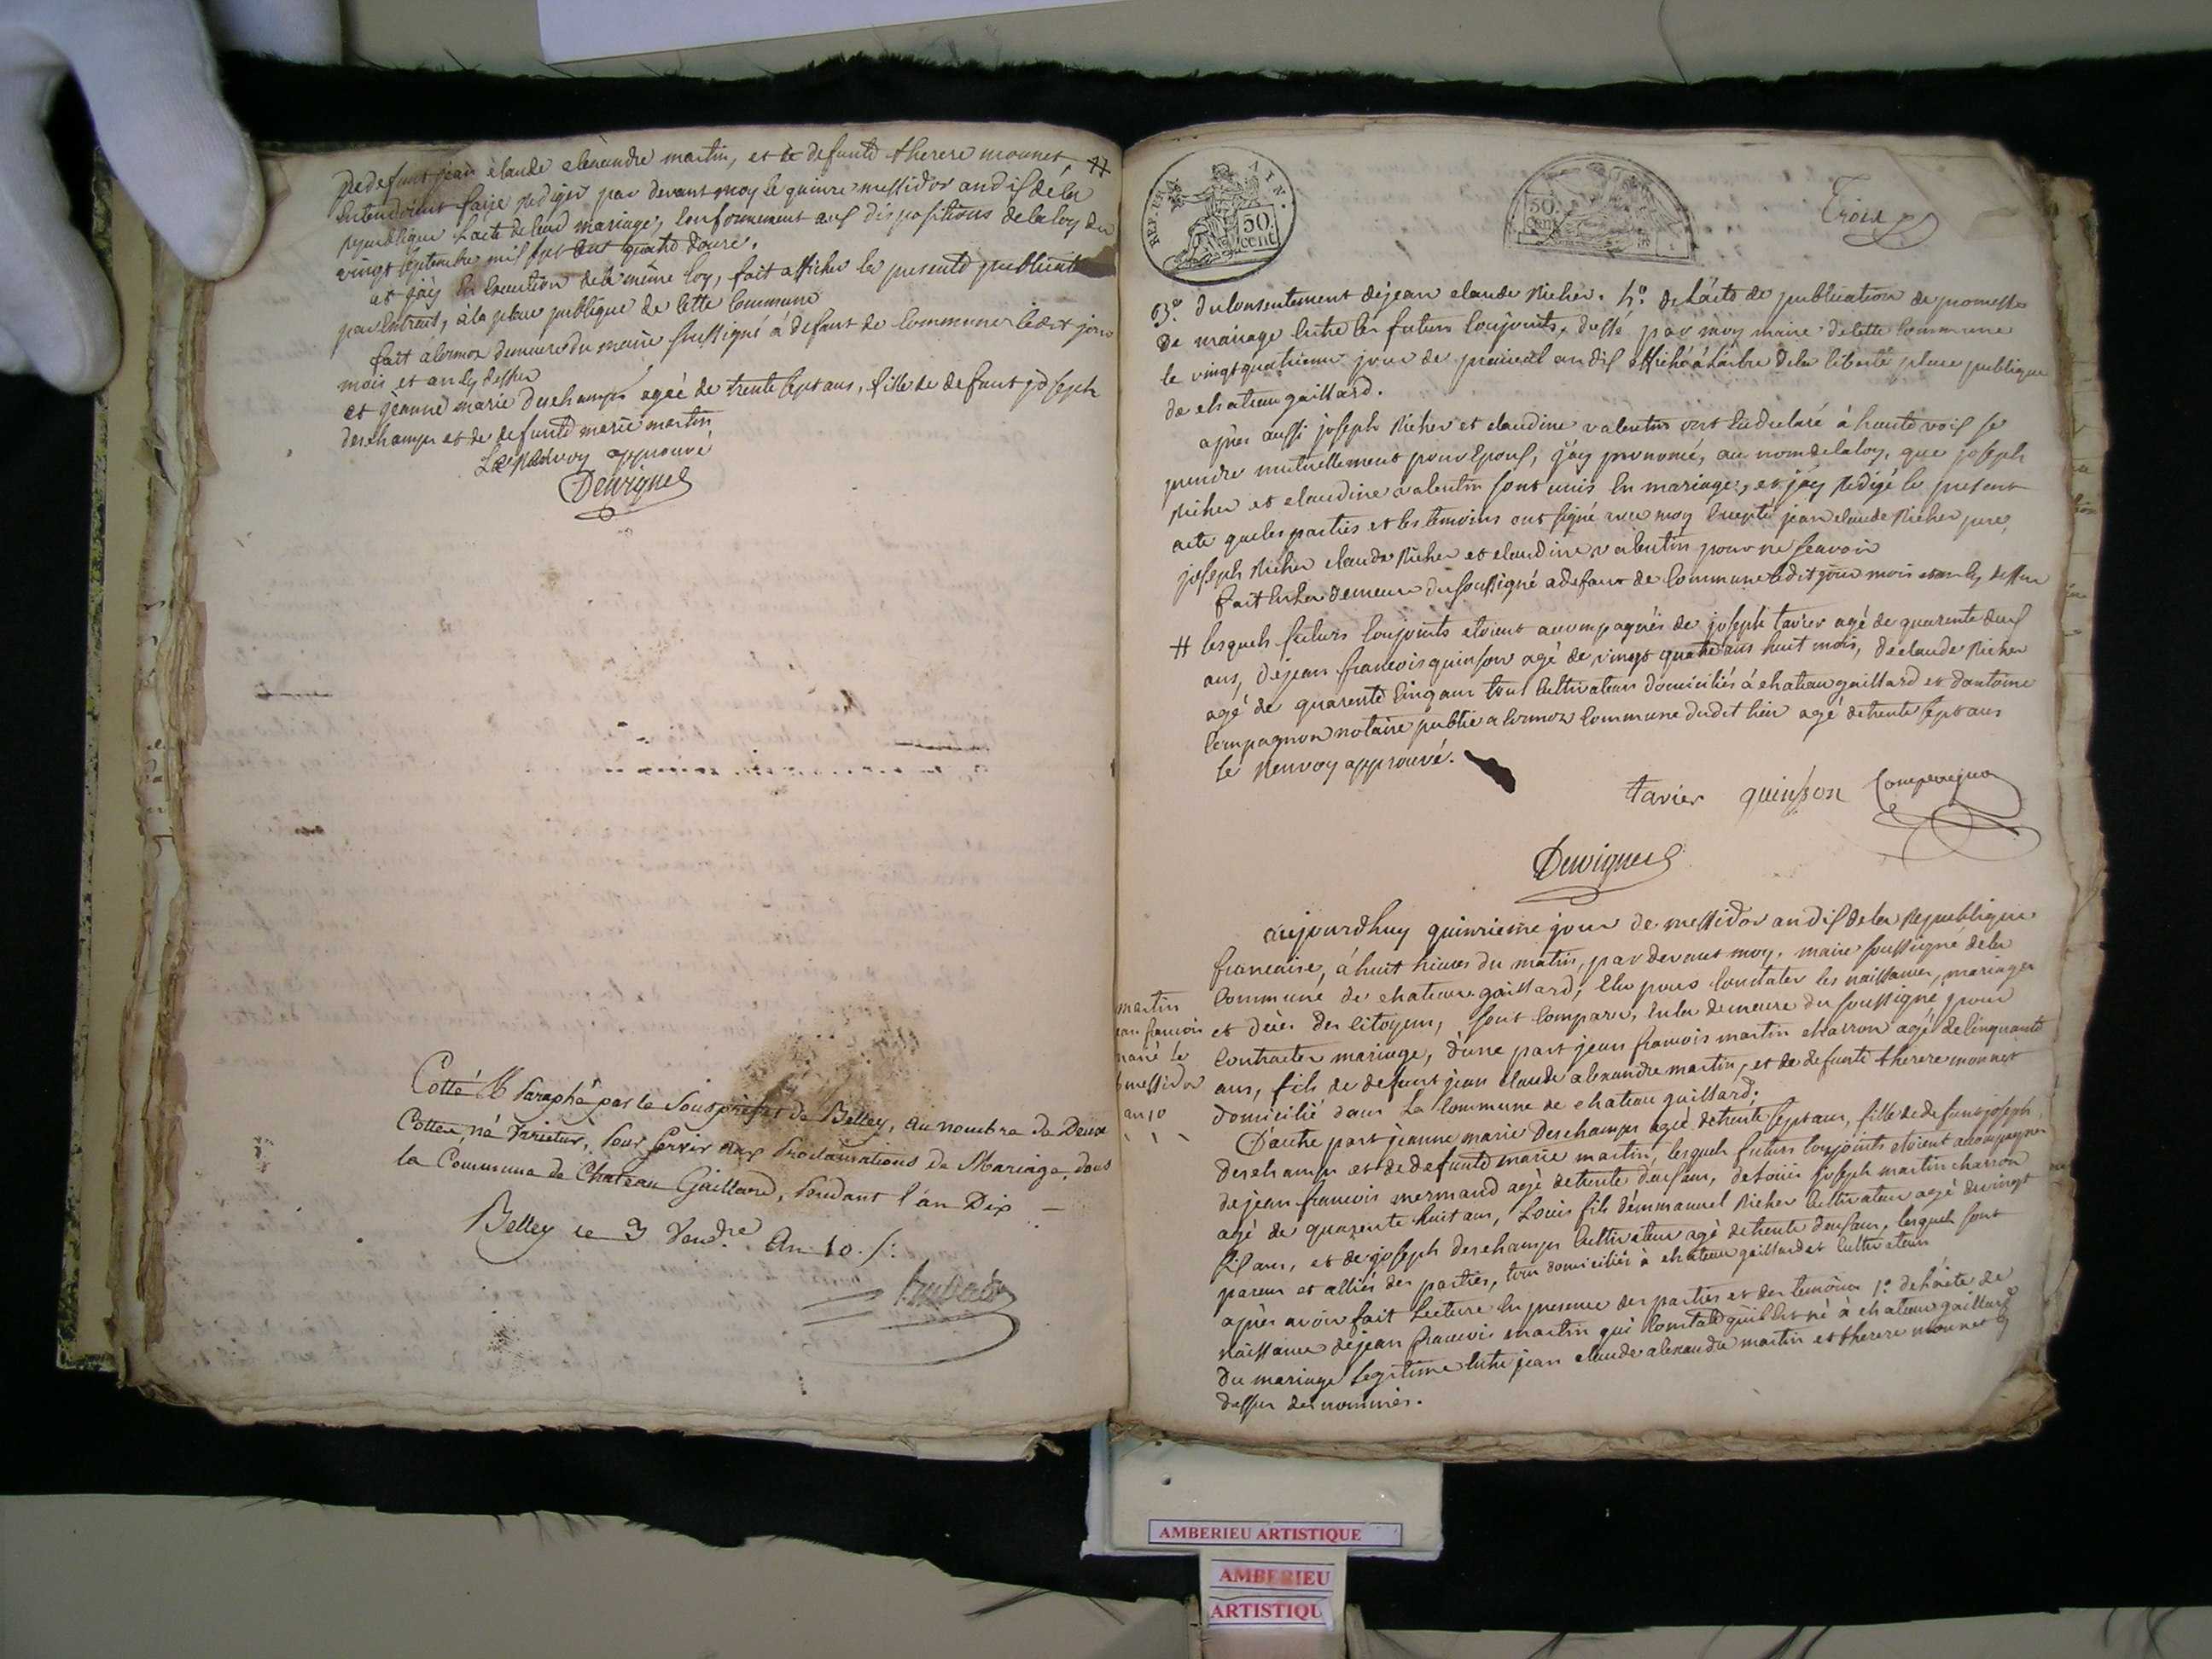 de defunt jean claude alexandre martin, et de defunte therese monnet, #
entendoient faire rediger par devant moy le quinze messidor an dix de la
republique l'acte de leur mariage, conformement aux dispositions de la loy du
vingt septembre mil sept cent quatre douze.
et j'ay en execution de la même loy, fait afficher la presente publication
par extrait, à la place publique de cette commune
fait à cormoz demeure du maire soussigné à defaut de commune ledit jour
mois et an cy dessus
et jeanne marie deschamps agée de trente sept ans, fille de defunt joseph
deschamps et de defunte marie martin
Le renvoy approuvé
Dervignes
Cotté & Paraphé par le Sous préfet de Belley, au nombre de Deux
Cottes, né varietur, Pour servir aux Proclamations de Mariage, dans
la Commune de Chateau Gaillard, Pendant l'an Dix
Belley le 3 Vend.re An 10./:
REP. FRA. AIN.
50. cent
50. cent
Trois
3.o du consentement de jean claude Richer. 4.o de l'acte de publication de promesse
de mariage entre les futurs conjoints, dressé par moy maire de cette commune
le vingt quatrieme jour de prairial an dix affiché à l'arbre de la liberté place publique
de chateau gaillard.
apres aussi joseph Richer et claudine valentin ont eu declaré à haute voix se
prendre mutuellement pour epoux, j'ay prononcé, au nom de la loy, que joseph
Richer et claudine valentin sont unis en mariage, et j'ay redigé le present
acte que les parties et les temoins ont signé avec moy excepté jean claude Richer pere,
joseph Richer claude Richer et claudine valentin pour ne scavoir
fait en la demeure du soussigné a defaut de commune ledit jour mois et an cy dessus
# lesquels futurs conjoints etoient accompagnés de joseph tavier agé de quarente deux
ans, de jean francois quinson agé de vingt quatre ans huit mois, de claude Richer
agé de quarente cinq ans tous cultivateurs domiciliés à chateau gaillard et d'antoine
Compagnon notaire public a cormoz commune dudit lieu agé de trente sept ans
le renvoy approuvé.
tavier quinson Compagnon
Dervignes
aujourdhuy quinzieme jour de messidor an dix de la Republique
francaise, à huit heures du matin, par devant moy, maire soussigné de la
commune de chateau gaillard, elu pour constater les naissances, mariages
et décès des citoyens, sont comparu, en la demeure du soussigné pour
contracter mariage, d'une part jean francois martin charron agé de cinquante
ans, fils de defunt jean claude alexandre martin, et de defunte therese monnet
domicilié dans la commune de chateau gaillard.
martin
ean francois
marié le
messidor
an 10
D'autre part jeanne marie Deschamps agée de trente sept ans, fille de defunt joseph
deschamps et de defunte marie martin, lesquels futurs conjoints etoient accompagnés
de jean francois mermand agé de trente deux ans, de Louis joseph martin charron
agé de quarente huit ans, Louis fils d'emmanuel Richer cultivateur agé de vingt
six ans, et de joseph deschamps cultivateur agé de trente deux ans, lesquels sont
parens et alliés des parties, tous domiciliés à chateau gaillard et cultivateurs
après avoir fait lecture en presence des parties et des temoins 1.o de l'acte de
naissance de jean francois martin qui constate qu'il est né à chateau gaillard
du mariage legitime entre jean claude alexandre martin et therese monnet cy
dessus denommés.
AMBERIEU ARTISTIQUE
AMBERIEU
ARTISTIQU